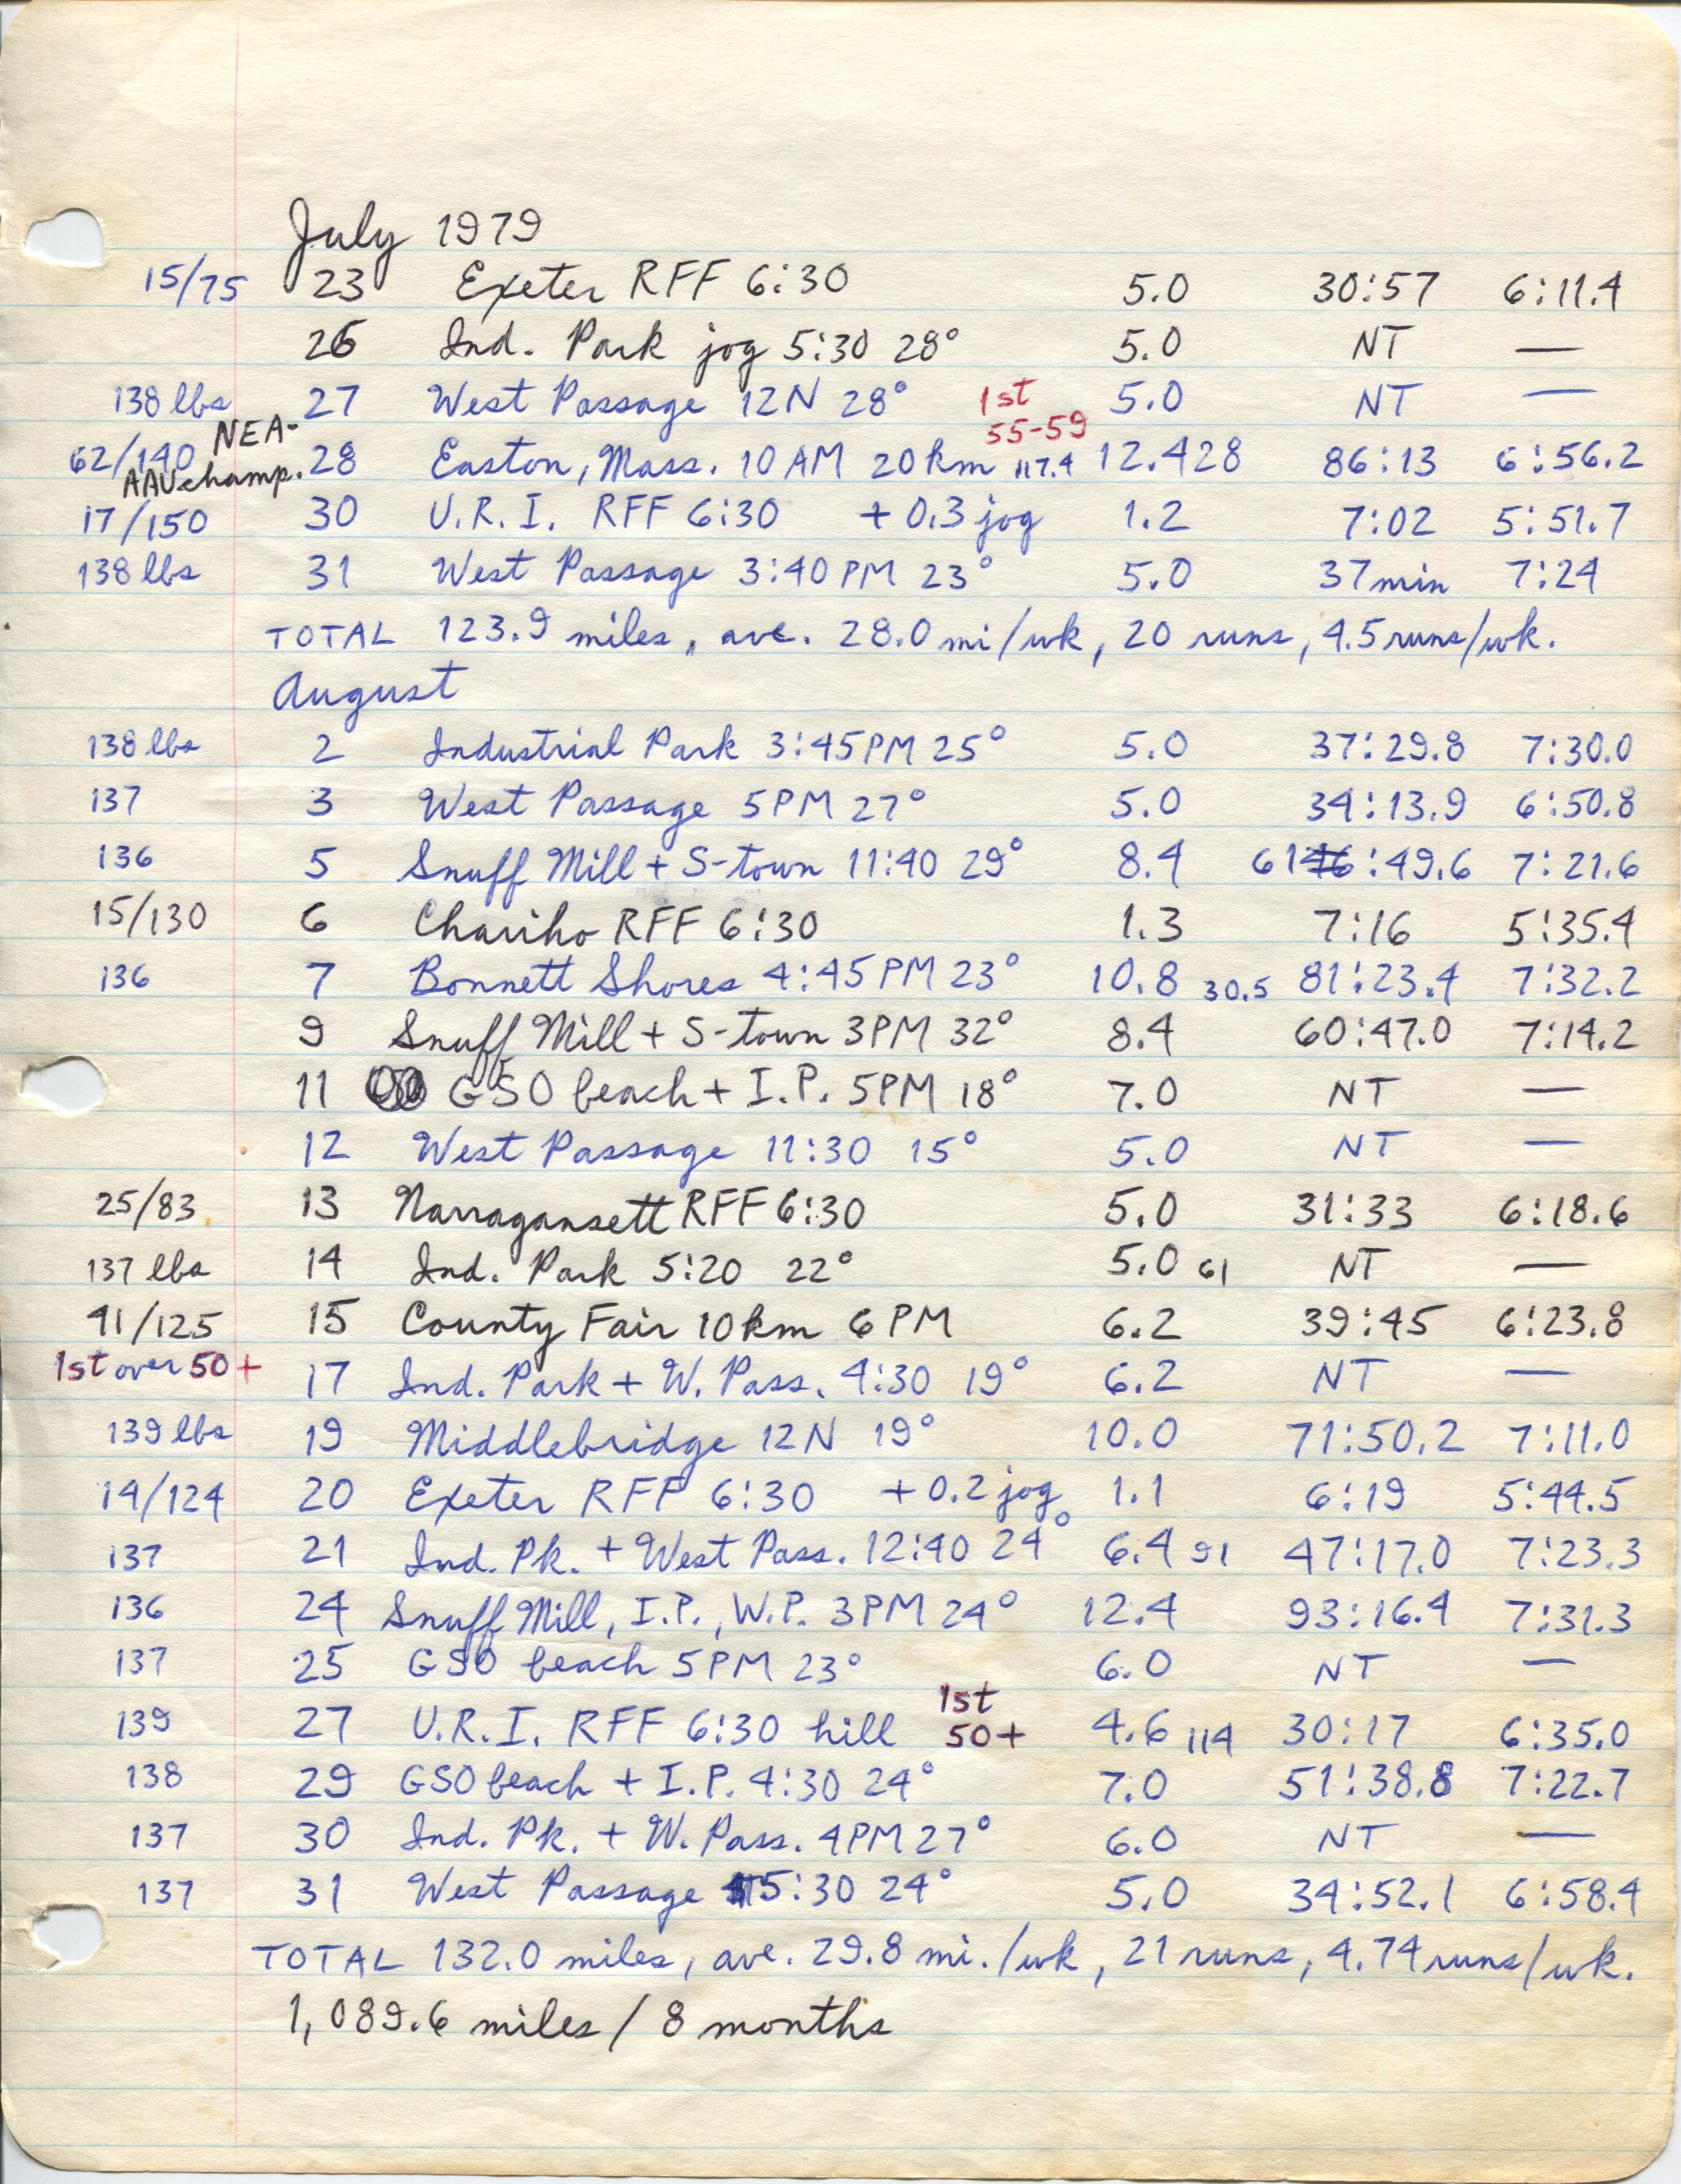 July 1979
15/75 23 Exeter RFF 6:30 5.0 30:57 6:11.4
26 Ind. Park jog 5:30 28° 5.0 NT —
138 lbs 27 West Passage 12N 28° 1st 5.0 NT —
NEA- 55-59
62/140 28 Easton, Mass. 10 AM 20 km 117.4 12.428 86:13 6:56.2
AAU champ.
17/150 30 U.R.I. RFF 6:30 + 0.3 jog 1.2 7:02 5:51.7
138 lbs 31 West Passage 3:40 PM 23° 5.0 37 min 7:24
TOTAL 123.9 miles, ave. 28.0 mi/wk, 20 runs, 4.5 runs/wk.
August
138 lbs 2 Industrial Park 3:45 PM 25° 5.0 37:29.8 7:30.0
137 3 West Passage 5 PM 27° 5.0 34:13.9 6:50.8
136 5 Snuff Mill + S-town 11:40 29° 8.4 61:49.6 7:21.6
15/130 6 Chariho RFF 6:30 1.3 7:16 5:35.4
136 7 Bonnett Shores 4:45 PM 23° 10.8 30.5 81:23.4 7:32.2
9 Snuff Mill + S-town 3 PM 32° 8.4 60:47.0 7:14.2
11 GSO beach + I.P. 5 PM 18° 7.0 NT —
12 West Passage 11:30 15° 5.0 NT —
25/83 13 Narragansett RFF 6:30 5.0 31:33 6:18.6
137 lbs 14 Ind. Park 5:20 22° 5.0 61 NT —
41/125 15 County Fair 10 km 6 PM 6.2 39:45 6:23.8
1st over 50+ 17 Ind. Park + W. Pass. 4:30 19° 6.2 NT —
139 lbs 19 Middlebridge 12N 19° 10.0 71:50.2 7:11.0
14/124 20 Exeter RFF 6:30 + 0.2 jog 1.1 6:19 5:44.5
137 21 Ind. Pk. + West Pass. 12:40 24° 6.4 91 47:17.0 7:23.3
136 24 Snuff Mill, I.P., W.P. 3 PM 24° 12.4 93:16.4 7:31.3
137 25 GSO beach 5 PM 23° 6.0 NT —
1st
139 27 U.R.I. RFF 6:30 hill 50+ 4.6 114 30:17 6:35.0
138 29 GSO beach + I.P. 4:30 24° 7.0 51:38.8 7:22.7
137 30 Ind. Pk. + W. Pass. 4 PM 27° 6.0 NT —
137 31 West Passage 5:30 24° 5.0 34:52.1 6:58.4
TOTAL 132.0 miles, ave. 29.8 mi./wk, 21 runs, 4.74 runs/wk.
1,089.6 miles / 8 months